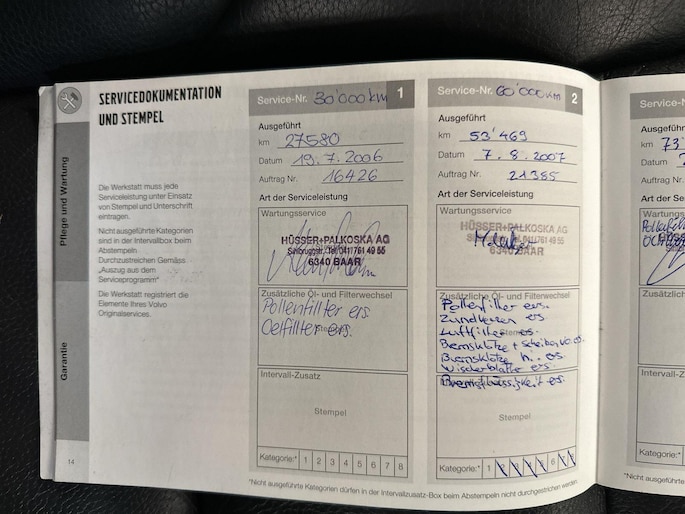 SERVICEDOKUMENTATION
UND STEMPEL
Pflege und Wartung
Garantie
Die Werkstatt muss jede
Serviceleistung unter Einsatz
von Stempel und Unterschrift
eintragen.
Nicht ausgeführte Kategorien
sind in der Intervallbox beim
Abstempeln
Durchzustreichen Gemäss
„Auszug aus dem
Serviceprogramm"
Die Werkstatt registriert die
Elemente Ihres Volvo
Originalservices.
14
Service-Nr. 30'000km 1
Ausgeführt
km 27580
Datum 19.7.2006
Auftrag Nr. 16426
Art der Serviceleistung
Wartungsservice
HÜSSER+PALKOSKA AG
Tel. 041/761 49 55
6340 BAAR
Zusätzliche Öl- und Filterwechsel
Pollenfilter ers.
Oelfilter ers.
Intervall-Zusatz
Stempel
Kategorie:* 1 2 3 4 5 6 7 8
Service-Nr. 60'000km 2
Ausgeführt
km 53'469
Datum 7.8.2007
Auftrag Nr. 21385
Art der Serviceleistung
Wartungsservice
HÜSSER+PALKOSKA AG
041/761 49 55
6340 BAAR
Zusätzliche Öl- und Filterwechsel
Pollenfilter ers.
Zündkerzen ers
Luftfilter ers.
Bremsklötze + Scheiben vo. es.
Bremsklötze hi. es.
Wischerblätter ers
Bremsflüssigkeit es.
Stempel
Kategorie:* 1 2 3 4 5 6 7 8
*Nicht ausgeführte Kategorien dürfen in der Intervallzusatz-Box beim Abstempeln nicht durchgestrichen werden
Service-Nr.
Ausgeführt
km
Datum
Auftrag Nr.
Art der Se
Wartungs
Zusätzlich
Intervall-Z
Kategorie:
*Nicht ausgeführte